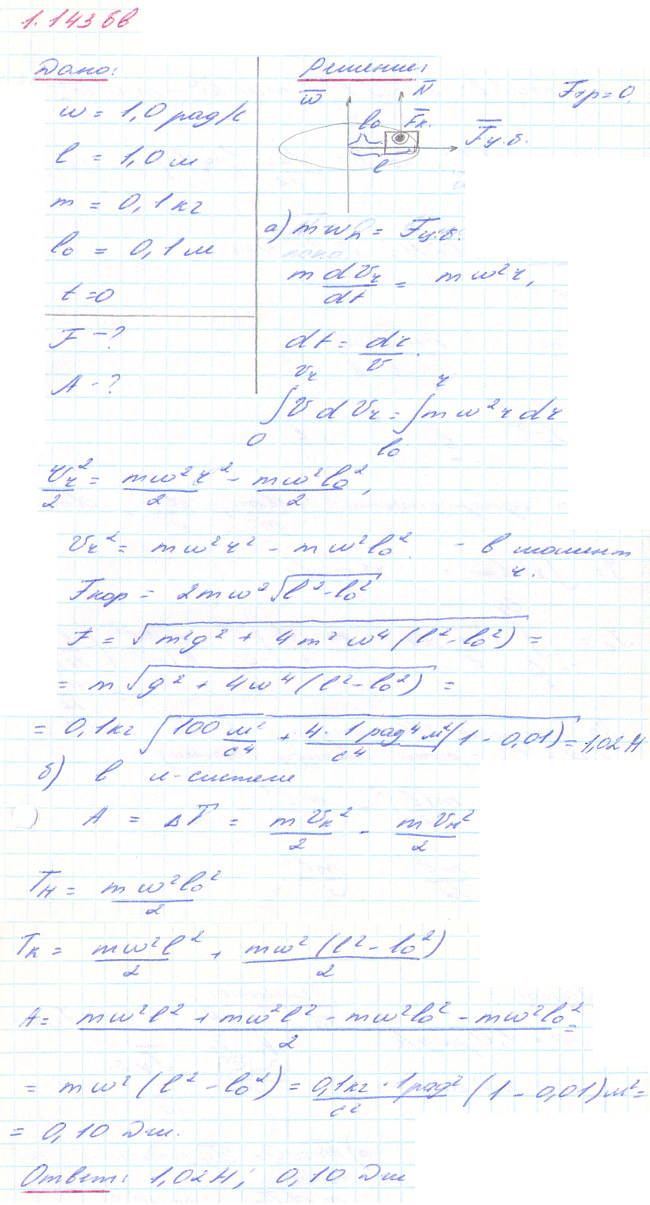 1.143 бв
Дано:
Решение:
ω = 1,0 рад/с
l = 1,0 м
m = 0,1 кг
l₀ = 0,1 м
t = 0
F - ?
A - ?
ω̄
N̄
F̄к.
l₀
l
F̄ц.б.
Fтр = 0.
а) mwn = Fц.б.
m dVr/dt = mω²r,
dt = dr/v.
∫₀^vr V dVr = ∫_l₀^r mω²r dr
Vr²/2 = mω²r²/2 - mω²l₀²/2,
Vr² = mω²r² - mω²l₀² - в момент r.
Fкор = 2mω²√(l² - l₀²)
F = √(m²g² + 4m²ω⁴(l² - l₀²)) =
= m√(g² + 4ω⁴(l² - l₀²)) =
= 0,1 кг √(100 м²/с⁴ + 4 · 1 рад⁴ м²/с⁴ (1 - 0,01)) = 1,02 Н
б) в л-системе
A = ΔT = mVк²/2 - mVн²/2
Tн = mω²l₀²/2
Tк = mω²l²/2 + mω²(l² - l₀²)/2
A = (mω²l² + mω²l² - mω²l₀² - mω²l₀²)/2 =
= mω²(l² - l₀²) = 0,1 кг · 1 рад²/с² (1 - 0,01) м² =
= 0,10 Дж.
Ответ: 1,02 Н; 0,10 Дж